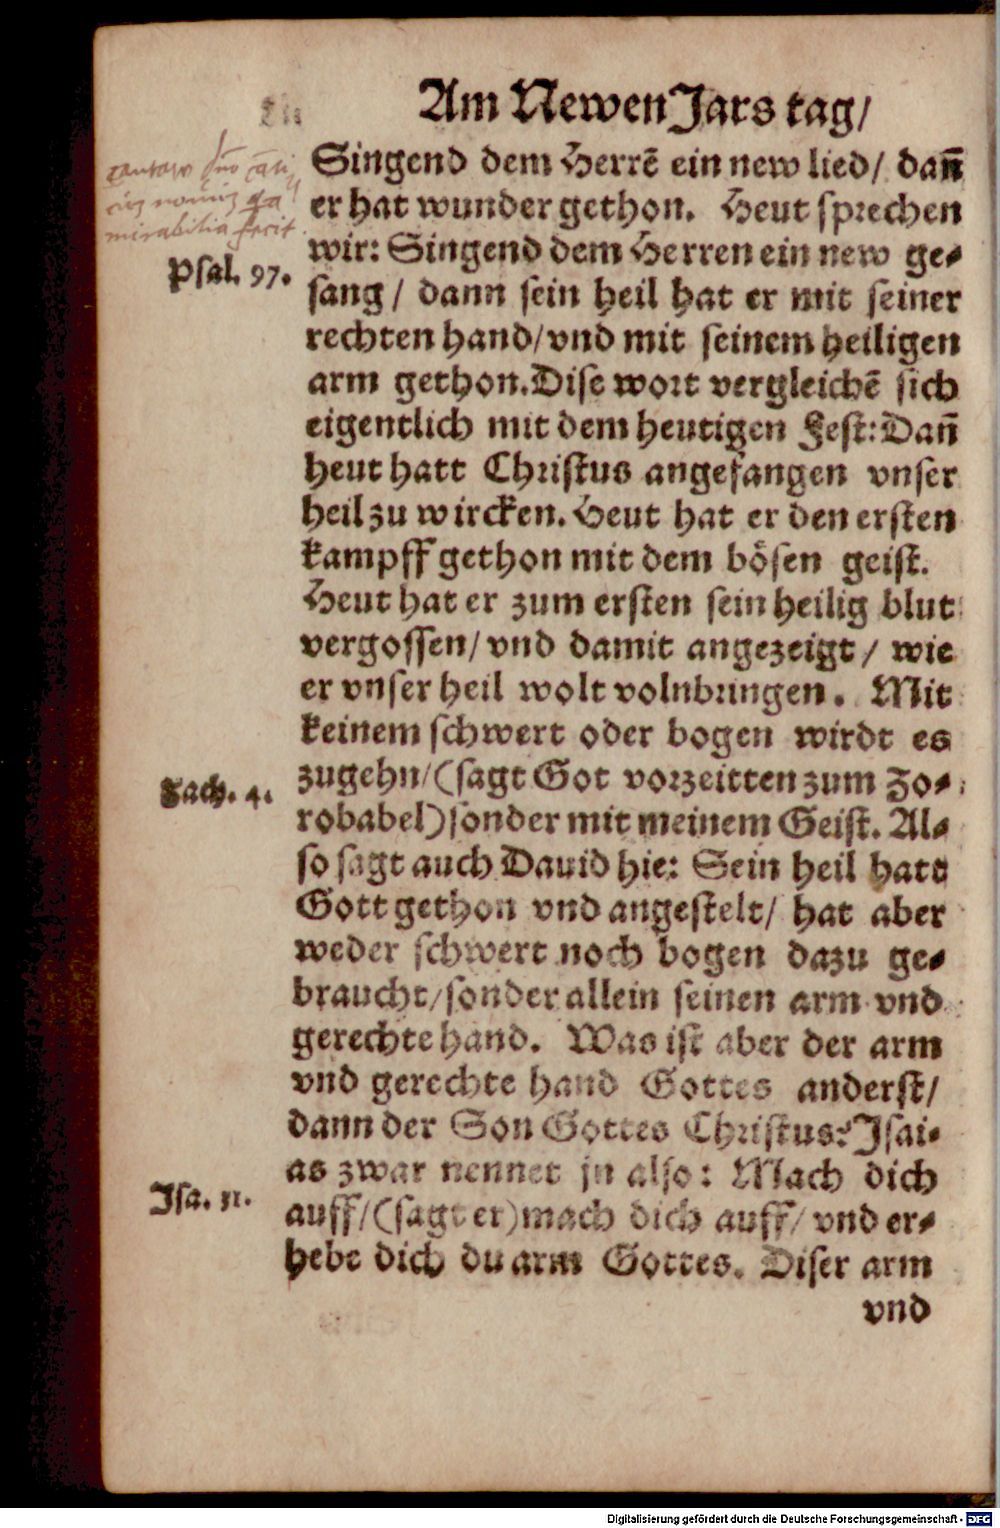 Am Newen Jars tag/
cantate dño cãti
cũ novũ q̃a
mirabilia fecit
Singend dem Herrẽ ein new lied/ dañ
er hat wunder gethon. Heut sprechen
wir: Singend dem Herren ein new ge-
Psal. 97.
sang / dann sein heil hat er mit seiner
rechten hand/vnd mit seinem heiligen
arm gethon. Dise wort vergleichẽ sich
eigentlich mit dem heutigen Fest: Dañ
heut hatt Christus angefangen vnser
heil zu wircken. Heut hat er den ersten
kampff gethon mit dem bösen geist.
Heut hat er zum ersten sein heilig blut
vergossen/ vnd damit angezeigt / wie
er vnser heil wolt volnbringen. Mit
keinem schwert oder bogen wirdt es
zugehn/(sagt Got vorzeitten zum Zo-
Zach. 4.
robabel) sonder mit meinem Geist. Al-
so sagt auch Dauid hie: Sein heil hatt
Gott gethon vnd angestelt/ hat aber
weder schwert noch bogen dazu ge-
braucht/sonder allein seinen arm vnd
gerechte hand. Was ist aber der arm
vnd gerechte hand Gottes anderst/
dann der Son Gottes Christus? Isai-
as zwar nennet jn also: Mach dich
Isa. 51.
auff/(sagt er) mach dich auff/ vnd er-
hebe dich du arm Gottes. Diser arm
vnd
Digitalisierung gefördert durch die Deutsche Forschungsgemeinschaft - DFG